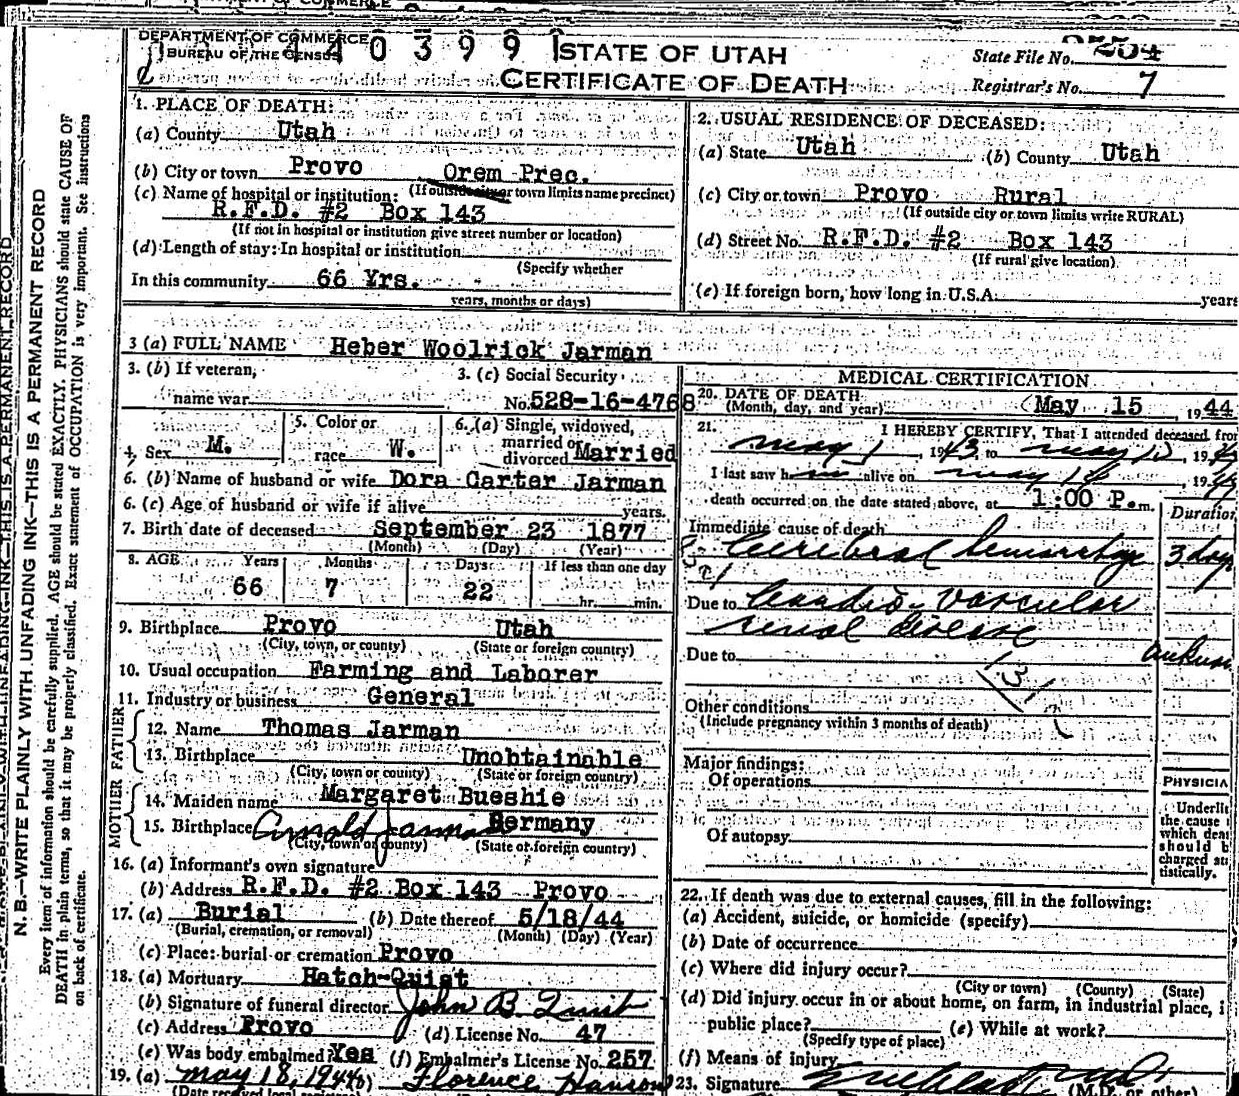 DEPARTMENT OF COMMERCE
BUREAU OF THE CENSUS
440399
STATE OF UTAH
CERTIFICATE OF DEATH
State File No.
Registrar's No. 7
N. B.—WRITE PLAINLY WITH UNFADING INK—THIS IS A PERMANENT RECORD
Every item of information should be carefully supplied. AGE should be stated EXACTLY. PHYSICIANS should state CAUSE OF
DEATH in plain terms, so that it may be properly classified. Exact statement of OCCUPATION is very important. See instructions
on back of certificate.
1. PLACE OF DEATH:
(a) County Utah
(b) City or town Provo Orem Prec.
(If outside city or town limits name precinct)
(c) Name of hospital or institution:
R.F.D. #2 Box 143
(If not in hospital or institution give street number or location)
(d) Length of stay: In hospital or institution
(Specify whether
In this community 66 Yrs.
years, months or days)
2. USUAL RESIDENCE OF DECEASED:
(a) State Utah (b) County Utah
(c) City or town Provo Rural
(If outside city or town limits write RURAL)
(d) Street No. R.F.D. #2 Box 143
(If rural give location)
(e) If foreign born, how long in U.S.A. years
3 (a) FULL NAME Heber Woolrick Jarman
3. (b) If veteran,
name war
3. (c) Social Security
No. 528-16-4768
4. Sex M.
5. Color or
race W.
6. (a) Single, widowed,
married or
divorced Married
6. (b) Name of husband or wife Dora Carter Jarman
6. (c) Age of husband or wife if alive years.
7. Birth date of deceased September 23 1877
(Month) (Day) (Year)
8. AGE Years Months Days If less than one day
66 7 22 hr. min.
9. Birthplace Provo Utah
(City, town, or county) (State or foreign country)
10. Usual occupation Farming and Laborer
11. Industry or business General
FATHER
12. Name Thomas Jarman
13. Birthplace Unobtainable
(City, town or county) (State or foreign country)
MOTHER
14. Maiden name Margaret Bueshie
15. Birthplace Germany
(City, town or county) (State or foreign country)
Arnold Jarman
16. (a) Informant's own signature
(b) Address R.F.D. #2 Box 143 Provo
17. (a) Burial (b) Date thereof 5/18/44
(Burial, cremation, or removal) (Month) (Day) (Year)
(c) Place: burial or cremation Provo
18. (a) Mortuary Hatch-Quist
(b) Signature of funeral director John B. Quist
(c) Address Provo (d) License No. 47
(e) Was body embalmed? Yes (f) Embalmer's License No. 257
19. (a) May 18, 1944 (b) Florence Hanson
MEDICAL CERTIFICATION
20. DATE OF DEATH
(Month, day, and year) May 15, 1944
21. I HEREBY CERTIFY, That I attended deceased from
May 1, 1943, to May , 1944
I last saw him alive on May 14 1944
death occurred on the date stated above, at 1:00 P.m.
Duration
Immediate cause of death
Cerebral hemorrhage 3 days
Due to Cardio-vascular
renal disease
Due to
Other conditions
(Include pregnancy within 3 months of death)
Major findings:
Of operations
Of autopsy
PHYSICIA
Underli
the cause
which deat
should b
charged sta
tistically.
22. If death was due to external causes, fill in the following:
(a) Accident, suicide, or homicide (specify)
(b) Date of occurrence
(c) Where did injury occur?
(City or town) (County) (State)
(d) Did injury occur in or about home, on farm, in industrial place, i
public place? (e) While at work?
(Specify type of place)
(f) Means of injury
23. Signature
(M.D. or other)